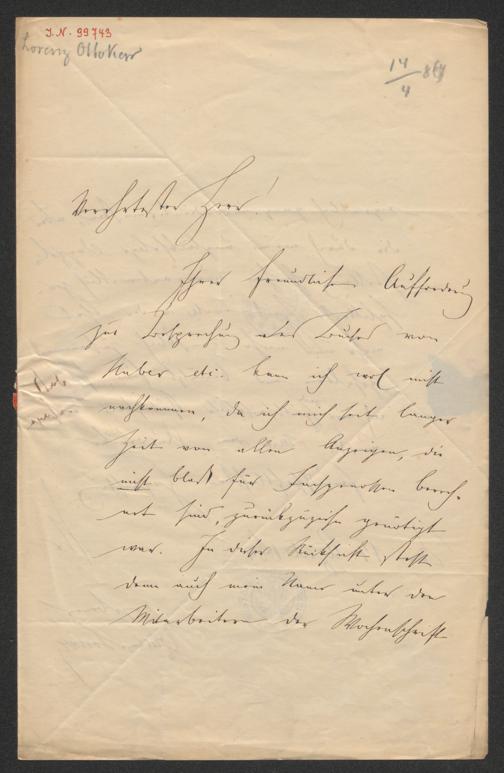 J.N. 99743
Lorenz Ottokar
14/4 864
Verehrtester Herr!
Ihrer freundlichen Aufforderung
zur Besprechung des Buches von
Huber etc. kann ich wol nicht
nachkommen, da ich mich seit langer
Zeit von allen Anzeigen, die
nicht bloß für Fachgenossen berech-
net sind, zurückzuziehn genötigt
war. In dieser Rücksicht steht
denn auch mein Name unter den
Mitarbeitern der Wochenschrift